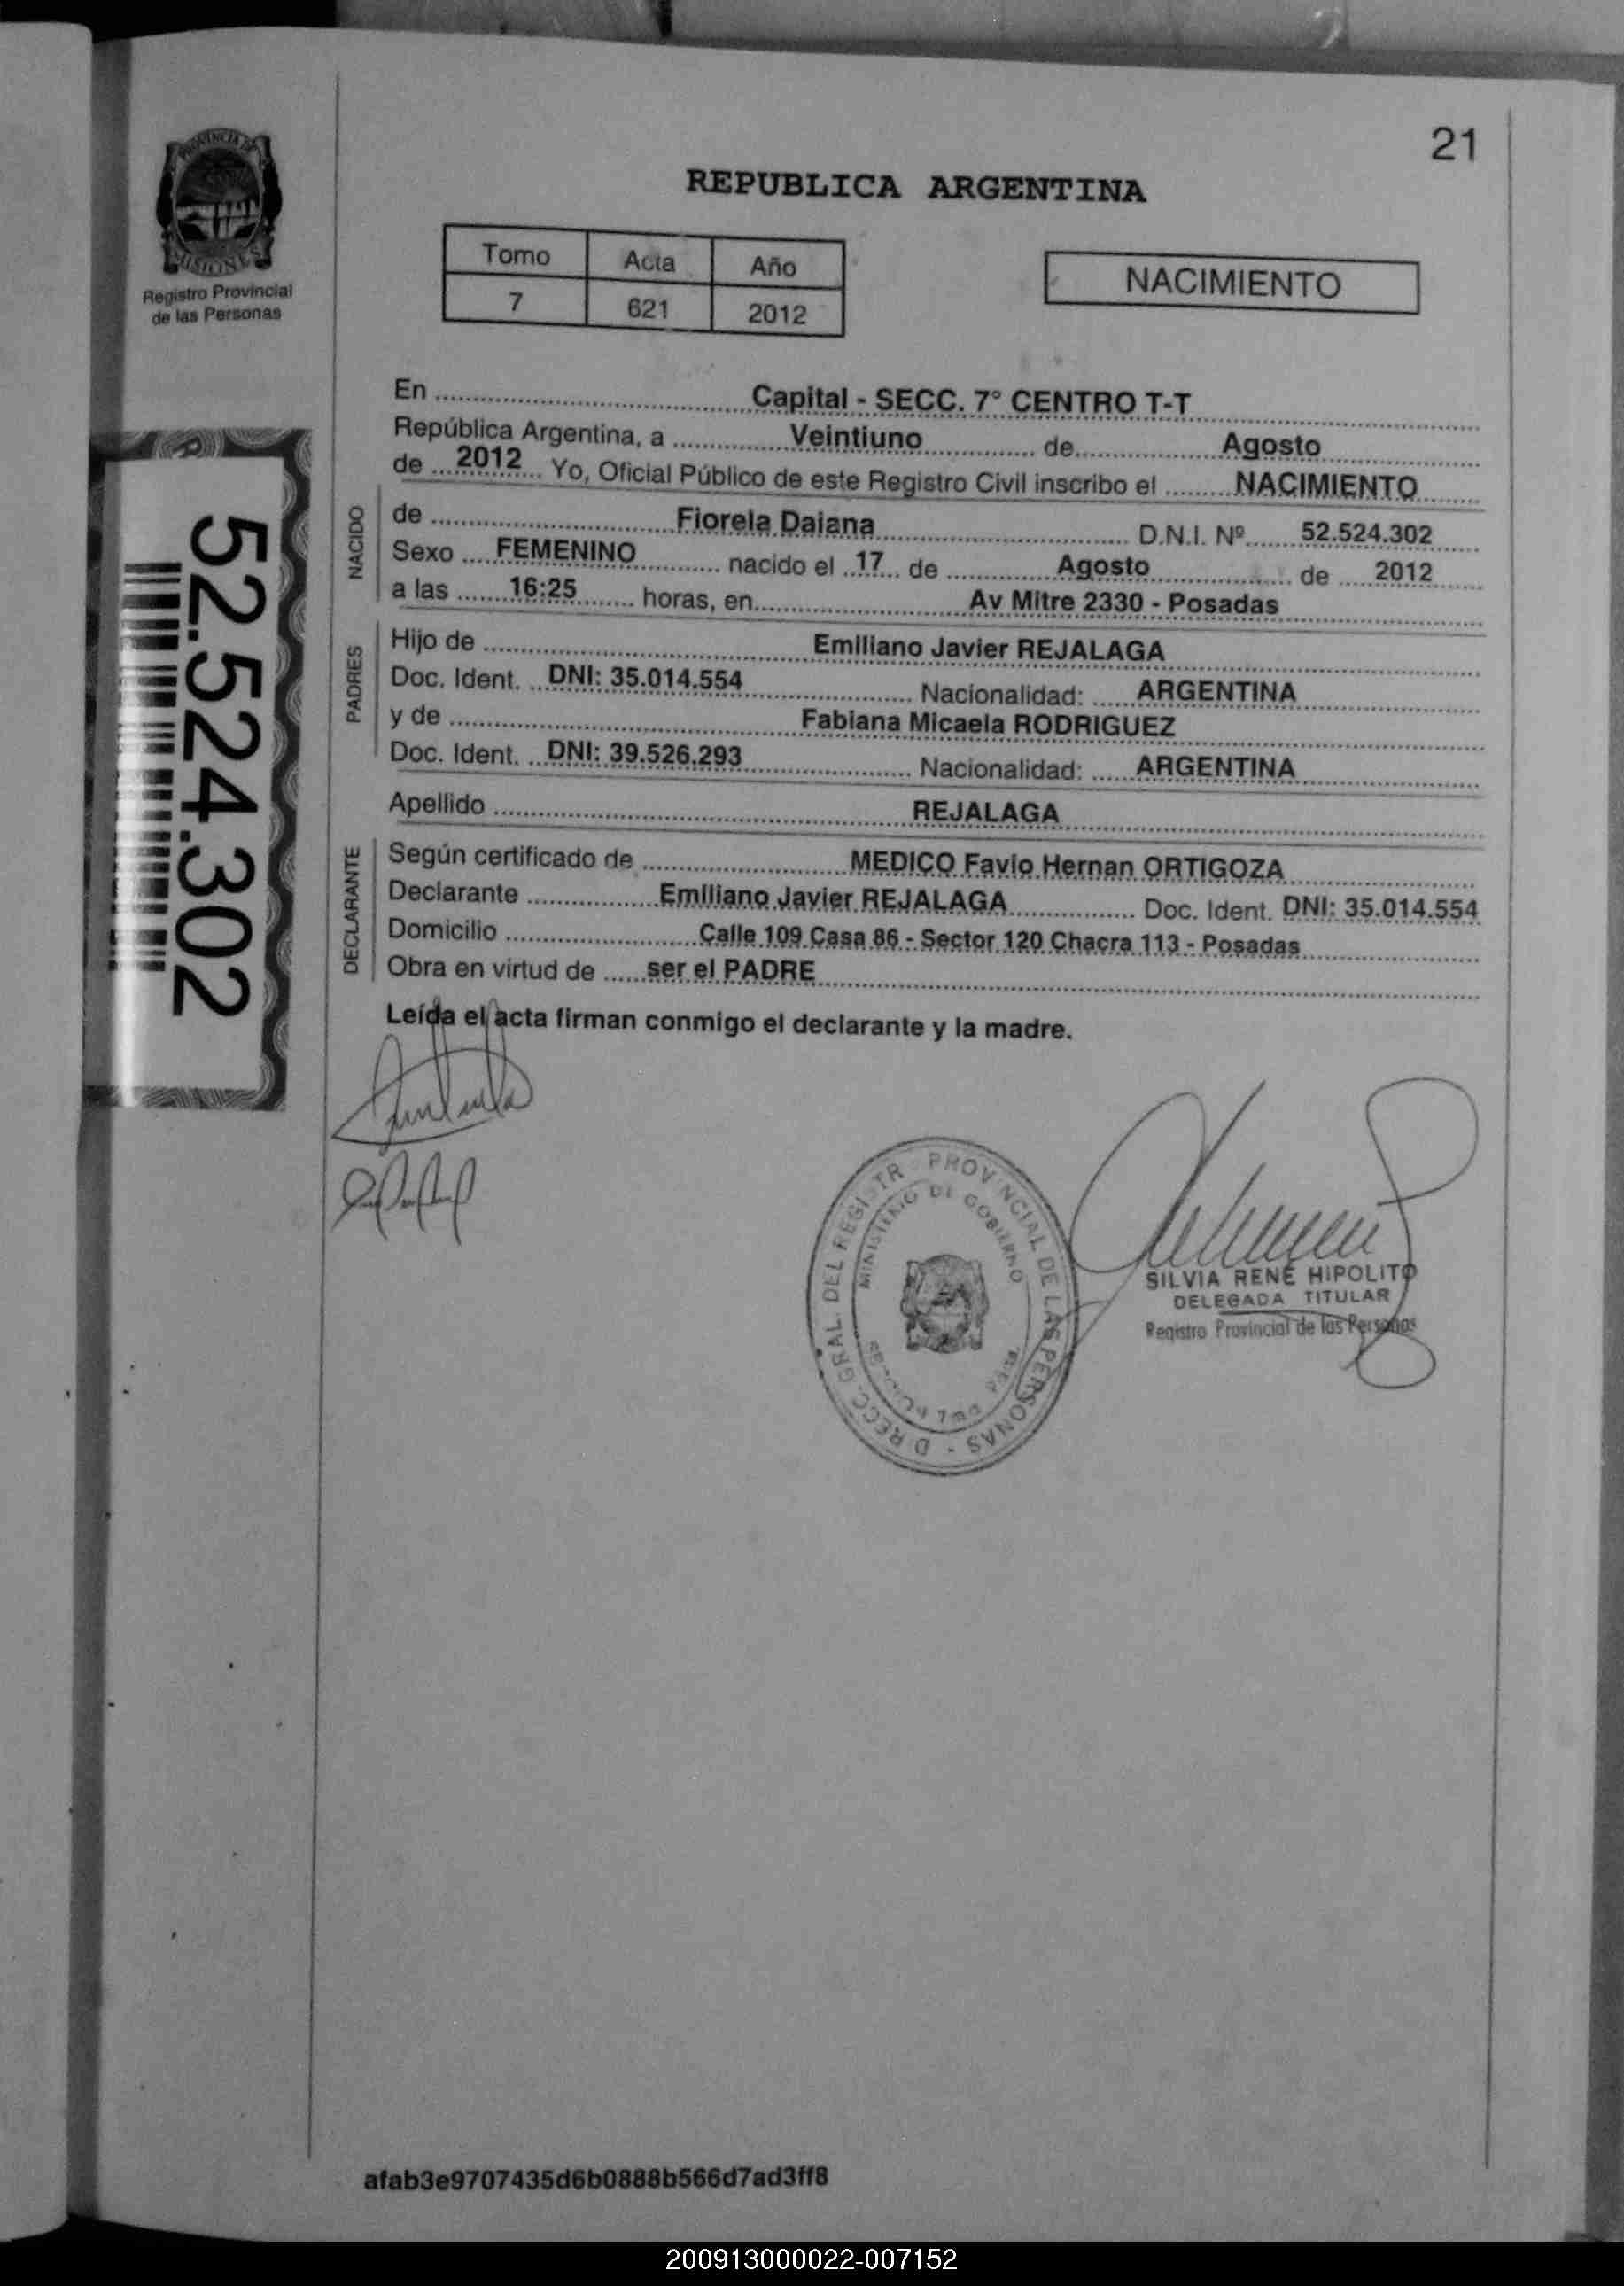 21
PROVINCIA DE
MISIONES
Registro Provincial
de las Personas
REPUBLICA ARGENTINA
Tomo Acta Año
7 621 2012
NACIMIENTO
En Capital - SECC. 7° CENTRO T-T
República Argentina, a Veintiuno de Agosto
de 2012 Yo, Oficial Público de este Registro Civil inscribo el NACIMIENTO
NACIDO
de Fiorela Daiana D.N.I. Nº 52.524.302
Sexo FEMENINO nacido el 17 de Agosto de 2012
a las 16:25 horas, en Av Mitre 2330 - Posadas
PADRES
Hijo de Emiliano Javier REJALAGA
Doc. Ident. DNI: 35.014.554 Nacionalidad: ARGENTINA
y de Fabiana Micaela RODRIGUEZ
Doc. Ident. DNI: 39.526.293 Nacionalidad: ARGENTINA
Apellido REJALAGA
DECLARANTE
Según certificado de MEDICO Favio Hernan ORTIGOZA
Declarante Emiliano Javier REJALAGA Doc. Ident. DNI: 35.014.554
Domicilio Calle 109 Casa 86 - Sector 120 Chacra 113 - Posadas
Obra en virtud de ser el PADRE
Leída el acta firman conmigo el declarante y la madre.
52.524.302
DIRECC. GRAL. DEL REGISTR PROVINCIAL DE LAS PERSONAS -
MINISTERIO DE GOBIERNO
SILVIA RENÉ HIPOLITO
DELEGADA TITULAR
Registro Provincial de las Personas
afab3e9707435d6b0888b566d7ad3ff8
200913000022-007152